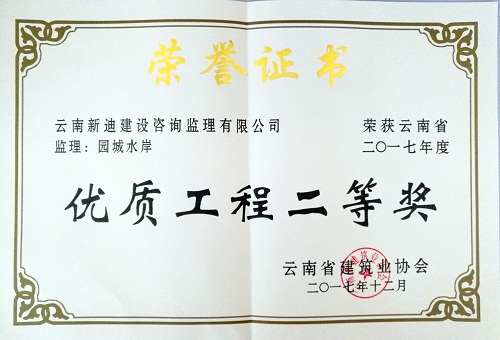 荣誉证书
云南新迪建设咨询监理有限公司 荣获云南省
监理：园城水岸 二〇一七年度
优质工程二等奖
云南省建筑业协会
二〇一七年十二月